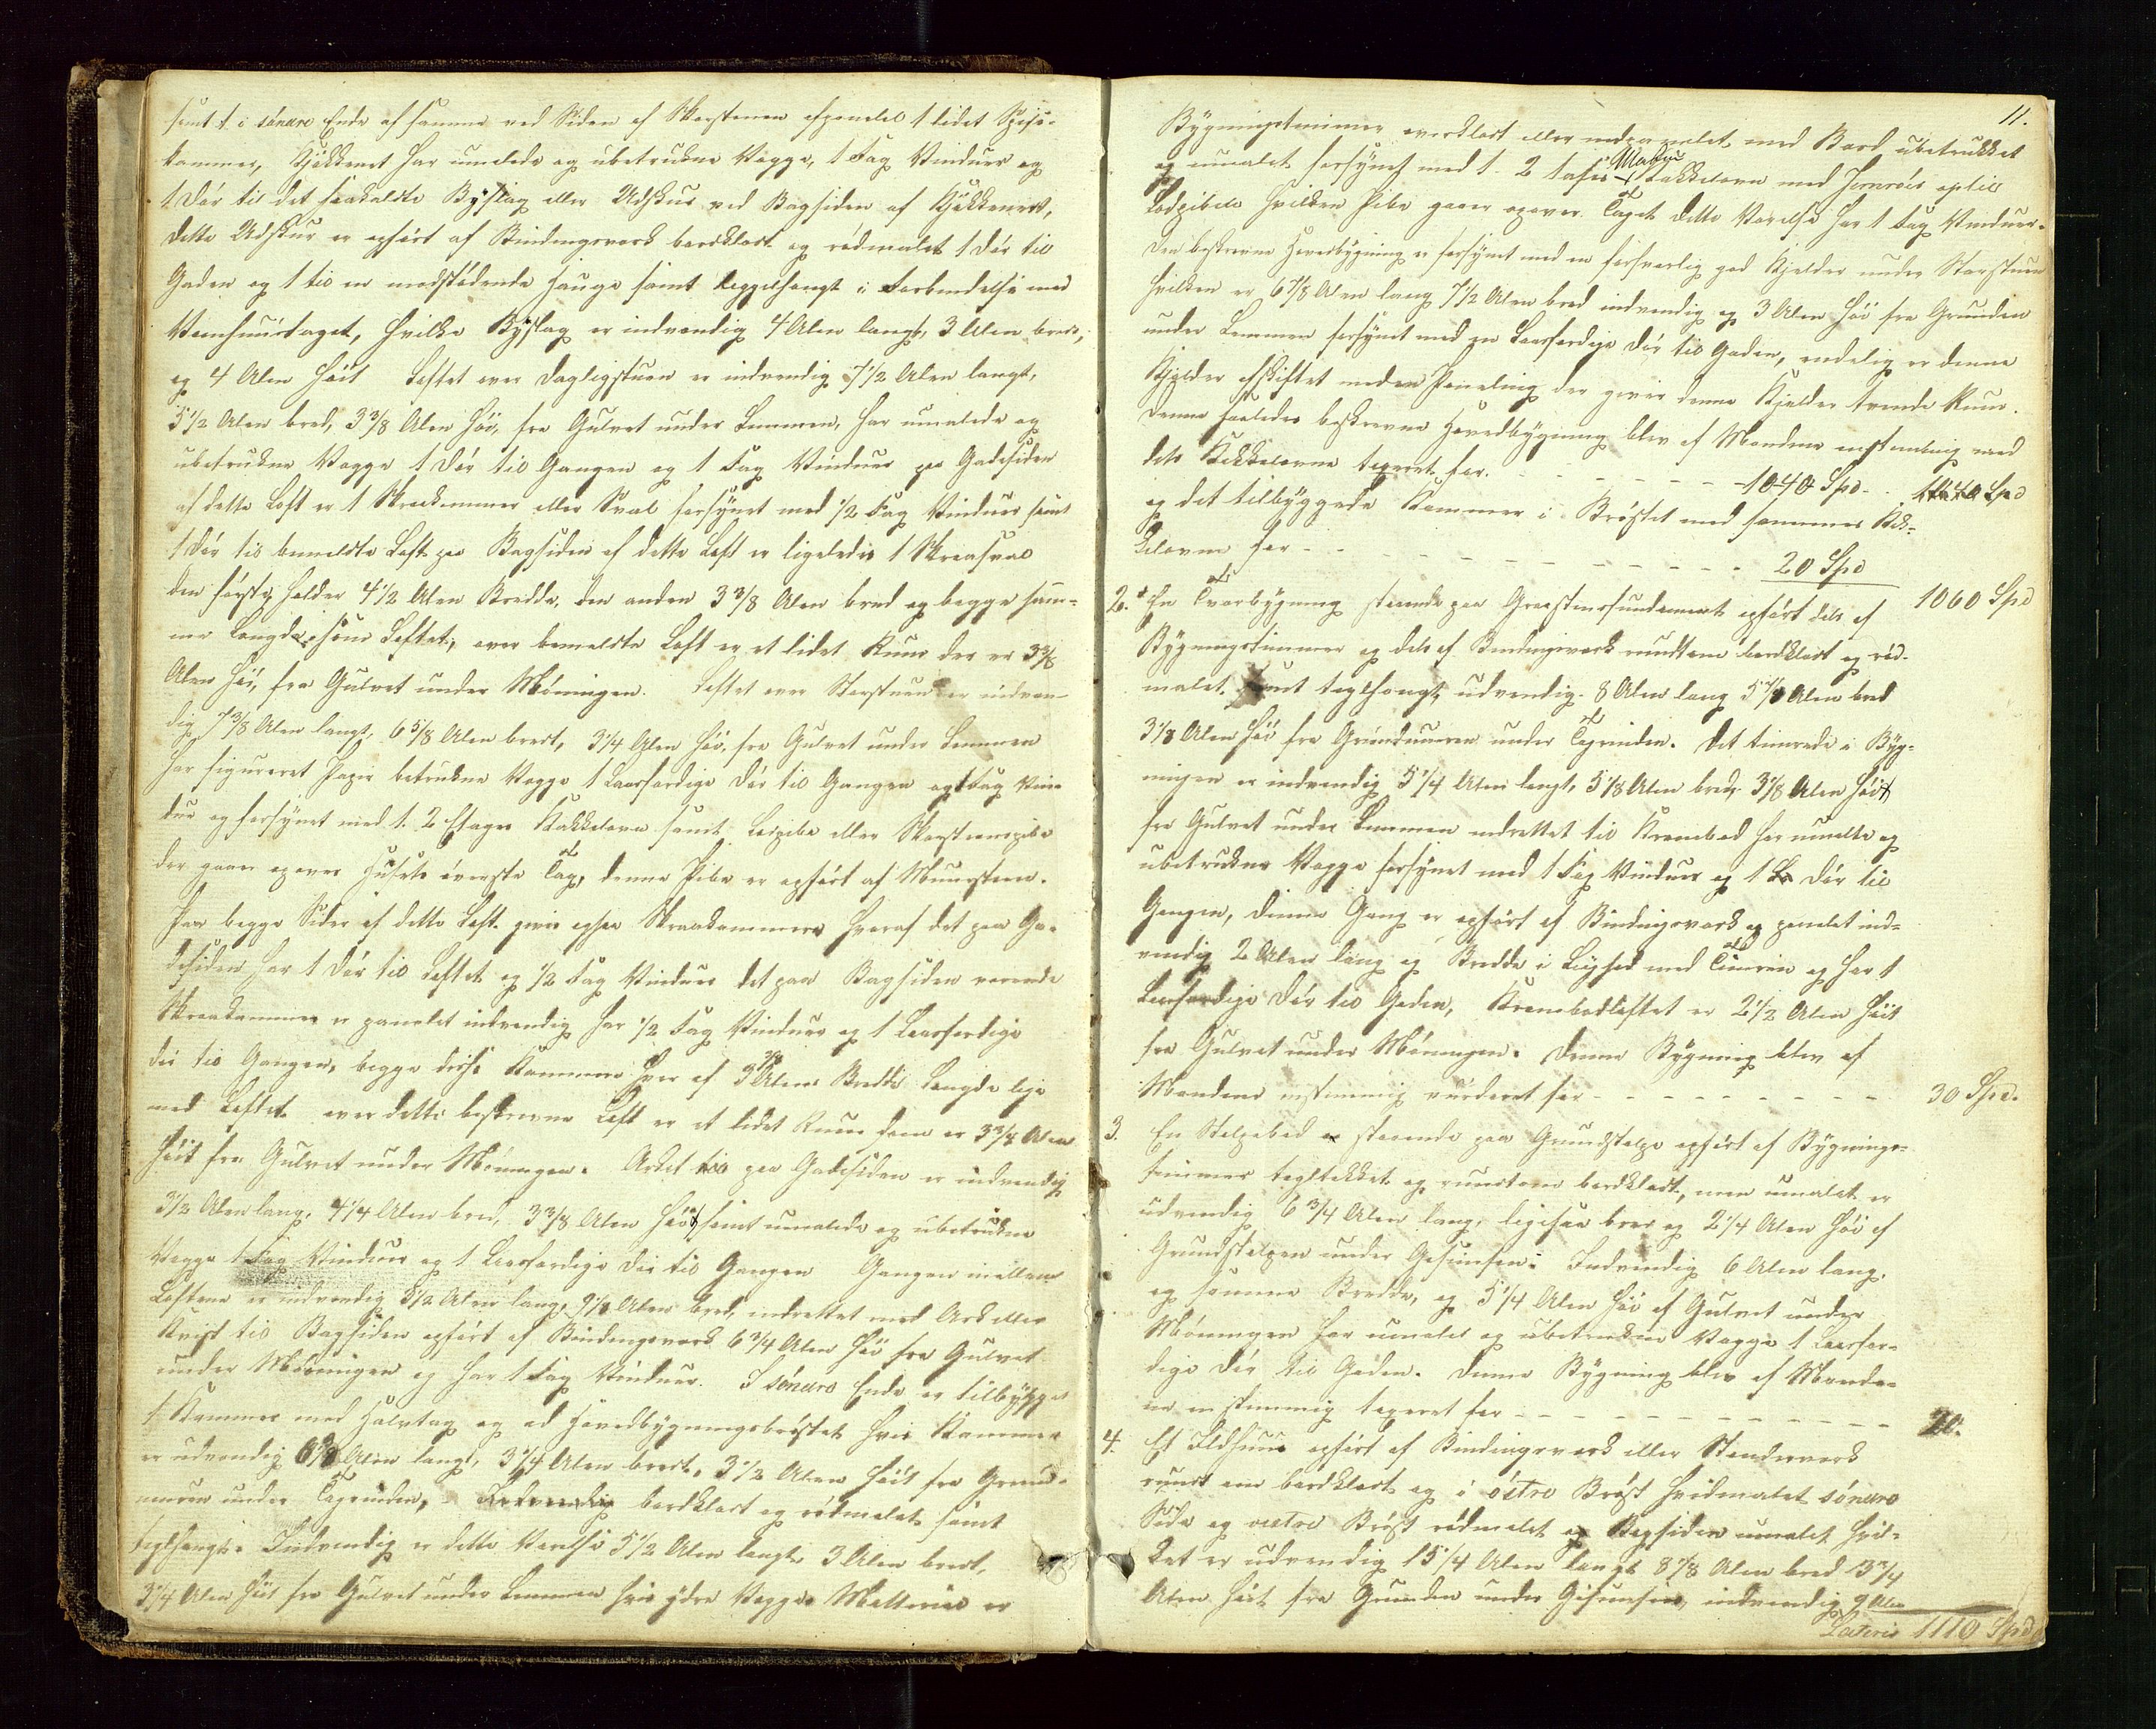 samt 1 i søndre Ende af samme ved Siden af Skorstenen afpanelet 1 lidet Spise-
kammer, Kjøkkenet har umalede og ubetrukne Vægge, 1 Fag Vinduer og
1 Dör til det saakaldte Byslag eller Udskur ved Bagsiden af Kjøkkenet,
dette Udskur er opfört af Bindingsverk bordklædt og rödmalet 1 Dör til
Gaden og 1 til en modstödende Hauge samt teglhængt i Forbindelse med
Vaanhuustaget, hvilke Byslag er indvendig 4 Alen langt, 3 Alen bredt,
og 4 Alen höit Loftet over Dagligstuen er indvendig 7 1/2 Alen langt,
5 1/2 Alen bred, 3 3/8 Alen höi, fra Gulvet under Lemmen, har umalede og
ubetrukne Vægge 1 Dör til Gangen og 1 Fag Vinduer paa Gadesiden
af dette Loft er 1 Skraakammer eller Sval forsynet med 1/2 Fag Vinduer samt
1 Dör til bemeldte Loft paa Bagsiden af dette Loft er ligeledes 1 Skraasval
den første holder 4 1/2 Alen Bredde, den anden 3 3/8 Alen bred og begge sam-
me Længde som Loftet, over bemeldte Loft er et lidet Ruum der er 3 3/8
Alen höi, fra Gulvet under Möningen. Loftet over Storstuen er indven-
dig 7 3/8 Alen langt, 6 5/8 Alen bredt, 3 1/4 Alen höi, fra Gulvet under Lemmen
har figureret Papir betrukne Vægge 1 Laasfærdige Dör til Gangen og 1 Fag Vin-
duer og forsynet med 1. 2 Etages Kakkelovn samt Lodpibe eller Skorstenspibe
der gaaer op over Husets överste Tag, denne Pibe er opfört af Muursteen.
Paa begge Sider af dette Loft gives ogsaa Skraakammere hvoraf det paa Ga-
desiden har 1 Dör til Loftet og 1/2 Fag Vinduer det paa Bagsiden værende
Skraakammer er panelet indvendig har 1/2 Fag Vinduer og 1 Laasfærdige
Dör til Gangen, begge disse Kammere hver af 3 3/8 Alens Bredde Længde lige
med Loftet over dette beskrevne Loft er et lidet Ruum som er 3 3/8 Alen
höit fra Gulvet under Möningen. Arket til paa Gadesiden er indvendig
3 1/2 Alen lang, 4 1/4 Alen bred, 3 3/8 Alen höi samt umalede og ubetrukne
Vægge 1 Fag Vinduer og 1 Laasfærdige Dör til Gangen Gangen mellem
Loftene er indvendig 5 1/2 Alen lang, 9 1/8 Alen bred, indrettet med Ark eller
Kvist til Bagsiden opfört af Bindingsverk 6 3/4 Alen höi fra Gulvet
under Möningen og har 1 Fag Vinduer. I söndre Ende er tilbygget
1 Kammer med Halvtag og ad Hovedbygningsbröstet hvis Kammer
er udvendig Alen langt, 3 3/4 Alen bredt, 3 1/2 Alen höit fra Grund-
muren under Tagrenden, bordklædt og rödmalet samt
teglhængt. Indvendig er dette Værelse 5 1/2 Alen langt 3 Alen bredt,
3 1/4 Alen höit fra Gulvet under Lemmen hvis ydre Vægges Matterial er
11.
Bygningstimmer overklædt eller med Bord ubetrukket
og umalet forsynet med 1. 2 Kakkelovn med Jernrör op til
Lodpibe hvilken Pibe gaaer op over Taget dette Værelse har 1 Fag Vinduer.
Den beskrevne Hovedbygning er forsynet med en forsvarlig god Kjelder under Storstuen
hvilken er 6 7/8 Alen lang 7 1/2 Alen bred indvendig og 3 Alen höi fra Grunden
under Lemmen forsynet med en Laasfærdige Dör til Gaden, endelig er denne
Kjelder afskiftet med en Paneling der giver denne Kjelder tvende Rum.
Denne saaledes beskrevne Hovedbygning blev af Mændene eenstemmig med
dets Kakkelovne taxeret for. - - - - - - 1040 Spd.
og det tilbyggede Kammer i Bröstet med sammes Kak-
kelovn for - - - - - - - - 20 Spd
1060 Spd
2. En Tverbygning staaende paa Graasteensfundament opfört dels af
Bygningstimmer og dels af Bindingsverk rundtom bordklædt og röd-
malet samt teglhængt udvendig. 8 Alen lang 5 7/8 Alen bred
3 1/8 Alen höi fra Grundmuren under Tagrenden. Det timrede i Byg-
ningen er indvendig 5 1/4 Alen langt, 5 1/8 Alen bred, 3 1/8 Alen höit
fra Gulvet under Lemmen indrettet til Krambod har umalte og
ubetrukne Vægge forsynet med 1 Fag Vinduer og 1 Dör til
Gangen, denne Gang er opfört af Bindingsverk og panelet ind-
vendig 2 Alen lang og Bredde i Liighed med Timren og har 1
Laasfærdige Dör til Gaden, Kramboeloftet er 2 1/2 Alen höit
fra Gulvet under Möningen. Denne Bygning blev af
Mændene eenstemmig vurderet for - - - - - - - - - 30 Spd.
3. En Stolpebod staaende paa Grundstolpe opfört af Bygnings-
timmer tegltækket og rundtom bordklædt, men umalet er
udvendig 6 3/4 Alen lang, ligesaa bred og 2 1/4 Alen höi af
Grundstolpen under Gesimsen. Indvendig 6 Alen lang,
og samme Bredde, og 5 1/4 Alen höi af Gulvet under
Möningen har umalet og ubetrukne Vægge 1 Laasfær-
dige Dör til Gaden. Denne Bygning blev af Mænde-
ne enstemmig taxeret for - - - - - - - - - 20.
4. Et Ildhuus opfört af Bindingsverk eller Stenderverk
rundt om bordklædt og i östre Bröst hvidmalet söndre
Side og vestre Bröst rödmalet og Bagsiden umalet hvil-
ket er udvendig 15 1/4 Alen langt 8 7/8 Alen bred 3 3/4
Alen höit fra Grunden under Gesimsen, indvendig 9 Alen
Lateris 1110 Spd